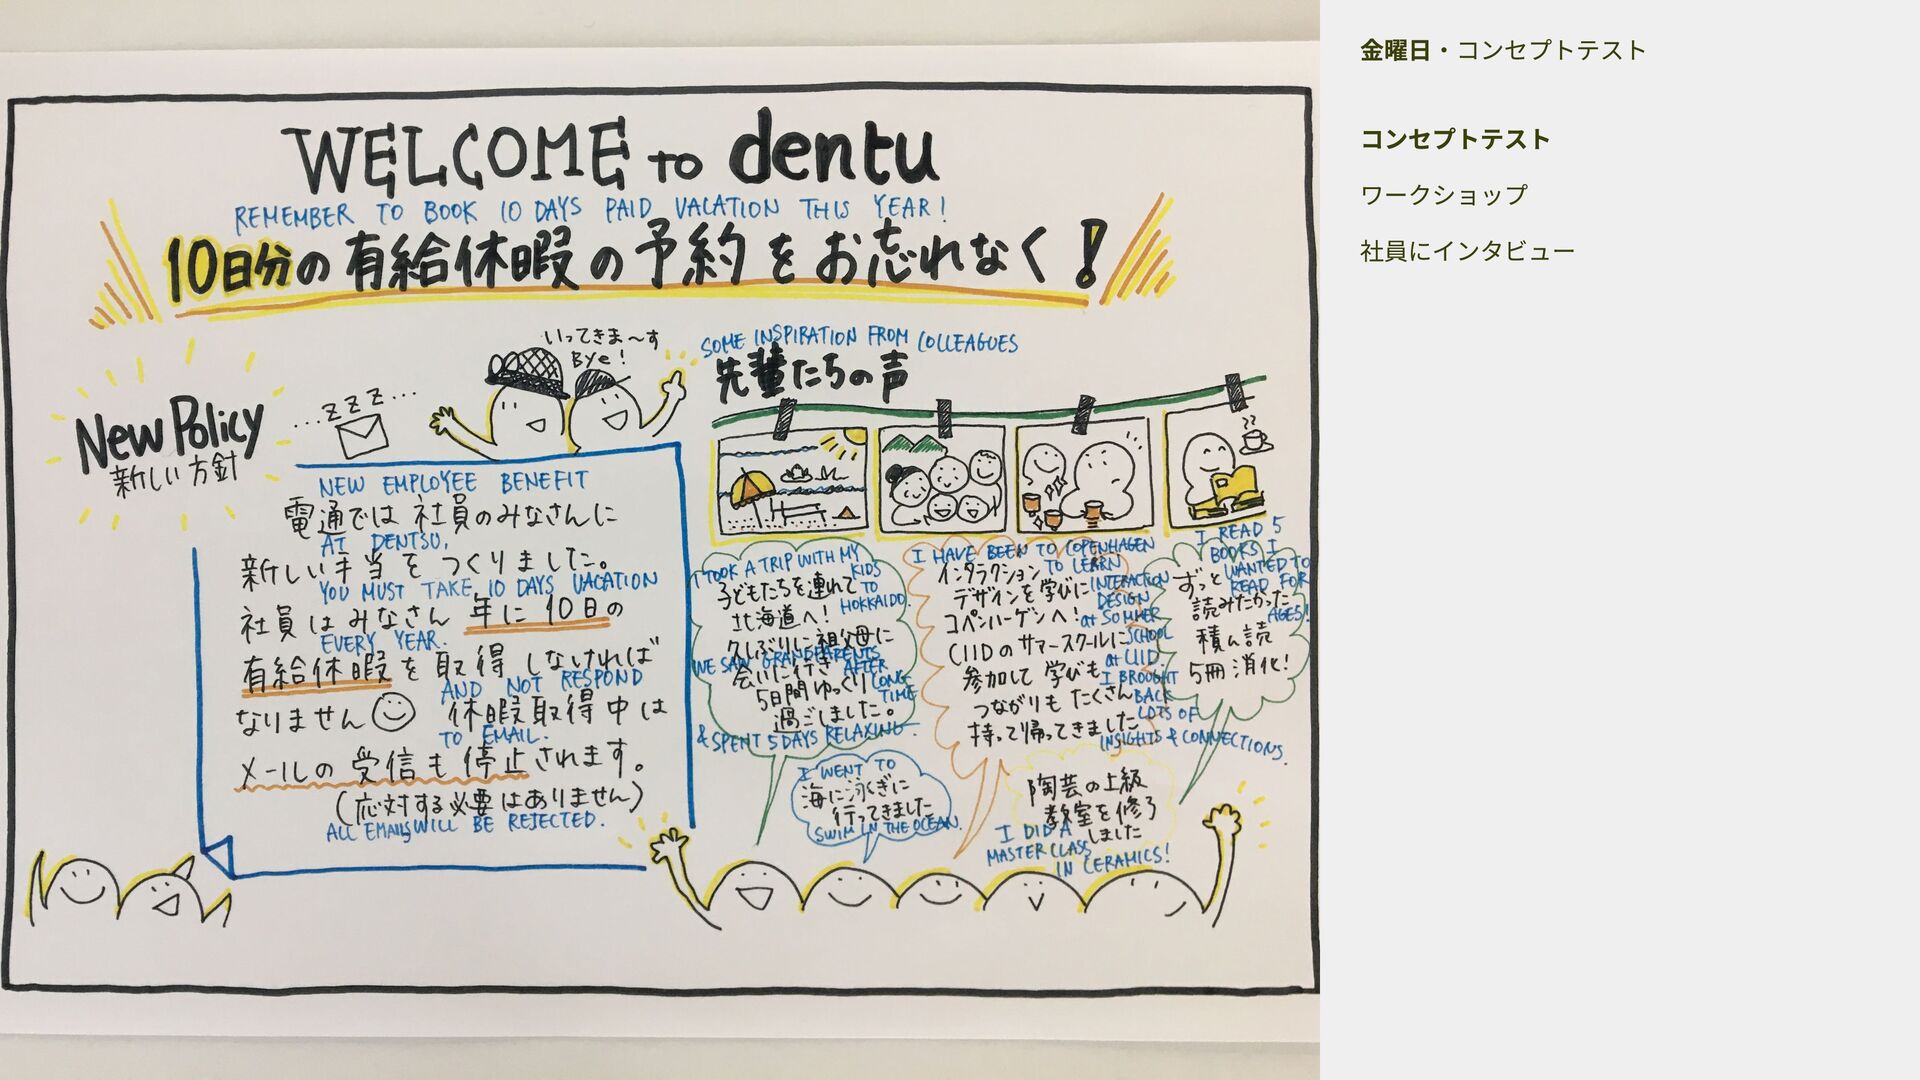 WELCOME to dentu
REMEMBER TO BOOK 10 DAYS PAID VACATION THIS YEAR!
10日分の有給休暇の予約をお忘れなく!
New Policy
新しい方針
...zzz...
いってきま〜す
Bye!
NEW EMPLOYEE BENEFIT
電通では社員のみなさんに
AT DENTSU,
新しい手当をつくりました。
YOU MUST TAKE 10 DAYS VACATION
社員はみなさん年に10日の
EVERY YEAR.
有給休暇を取得しなければ
AND NOT RESPOND
なりません 休暇取得中は
TO EMAIL.
メールの受信も停止されます。
(応対する必要はありません)
ALL EMAILS WILL BE REJECTED.
SOME INSPIRATION FROM COLLEAGUES
先輩たちの声
I TOOK A TRIP WITH MY
KIDS
子どもたちを連れて
TO
北海道へ!
HOKKAIDO.
久しぶりに祖父母に
WE SAW GRANDPARENTS
会いに行き
AFTER
LONG
5日間ゆっくり
TIME
過ごしました。
& SPENT 5 DAYS RELAXING.
I HAVE BEEN TO COPENHAGEN
TO LEARN
インタラクション
INTERACTION
デザインを学びに
DESIGN
コペンハーゲンへ!
at SUMMER
SCHOOL
CIIDのサマースクールに
at CIID.
参加して学びも
I BROUGHT
つながりもたくさん
BACK
LOTS OF
持って帰ってきました
INSIGHTS & CONNECTIONS.
I READ 5
BOOKS I
WANTED TO
ずっと
READ FOR
読みたかった
AGES!
積ん読
5冊消化!
I WENT TO
海に泳ぎに
行ってきました
SWIM IN THE OCEAN.
陶芸の上級
教室を修了
しました
I DID A
MASTERCLASS
IN CERAMICS!
金曜日・コンセプトテスト
コンセプトテスト
ワークショップ
社員にインタビュー